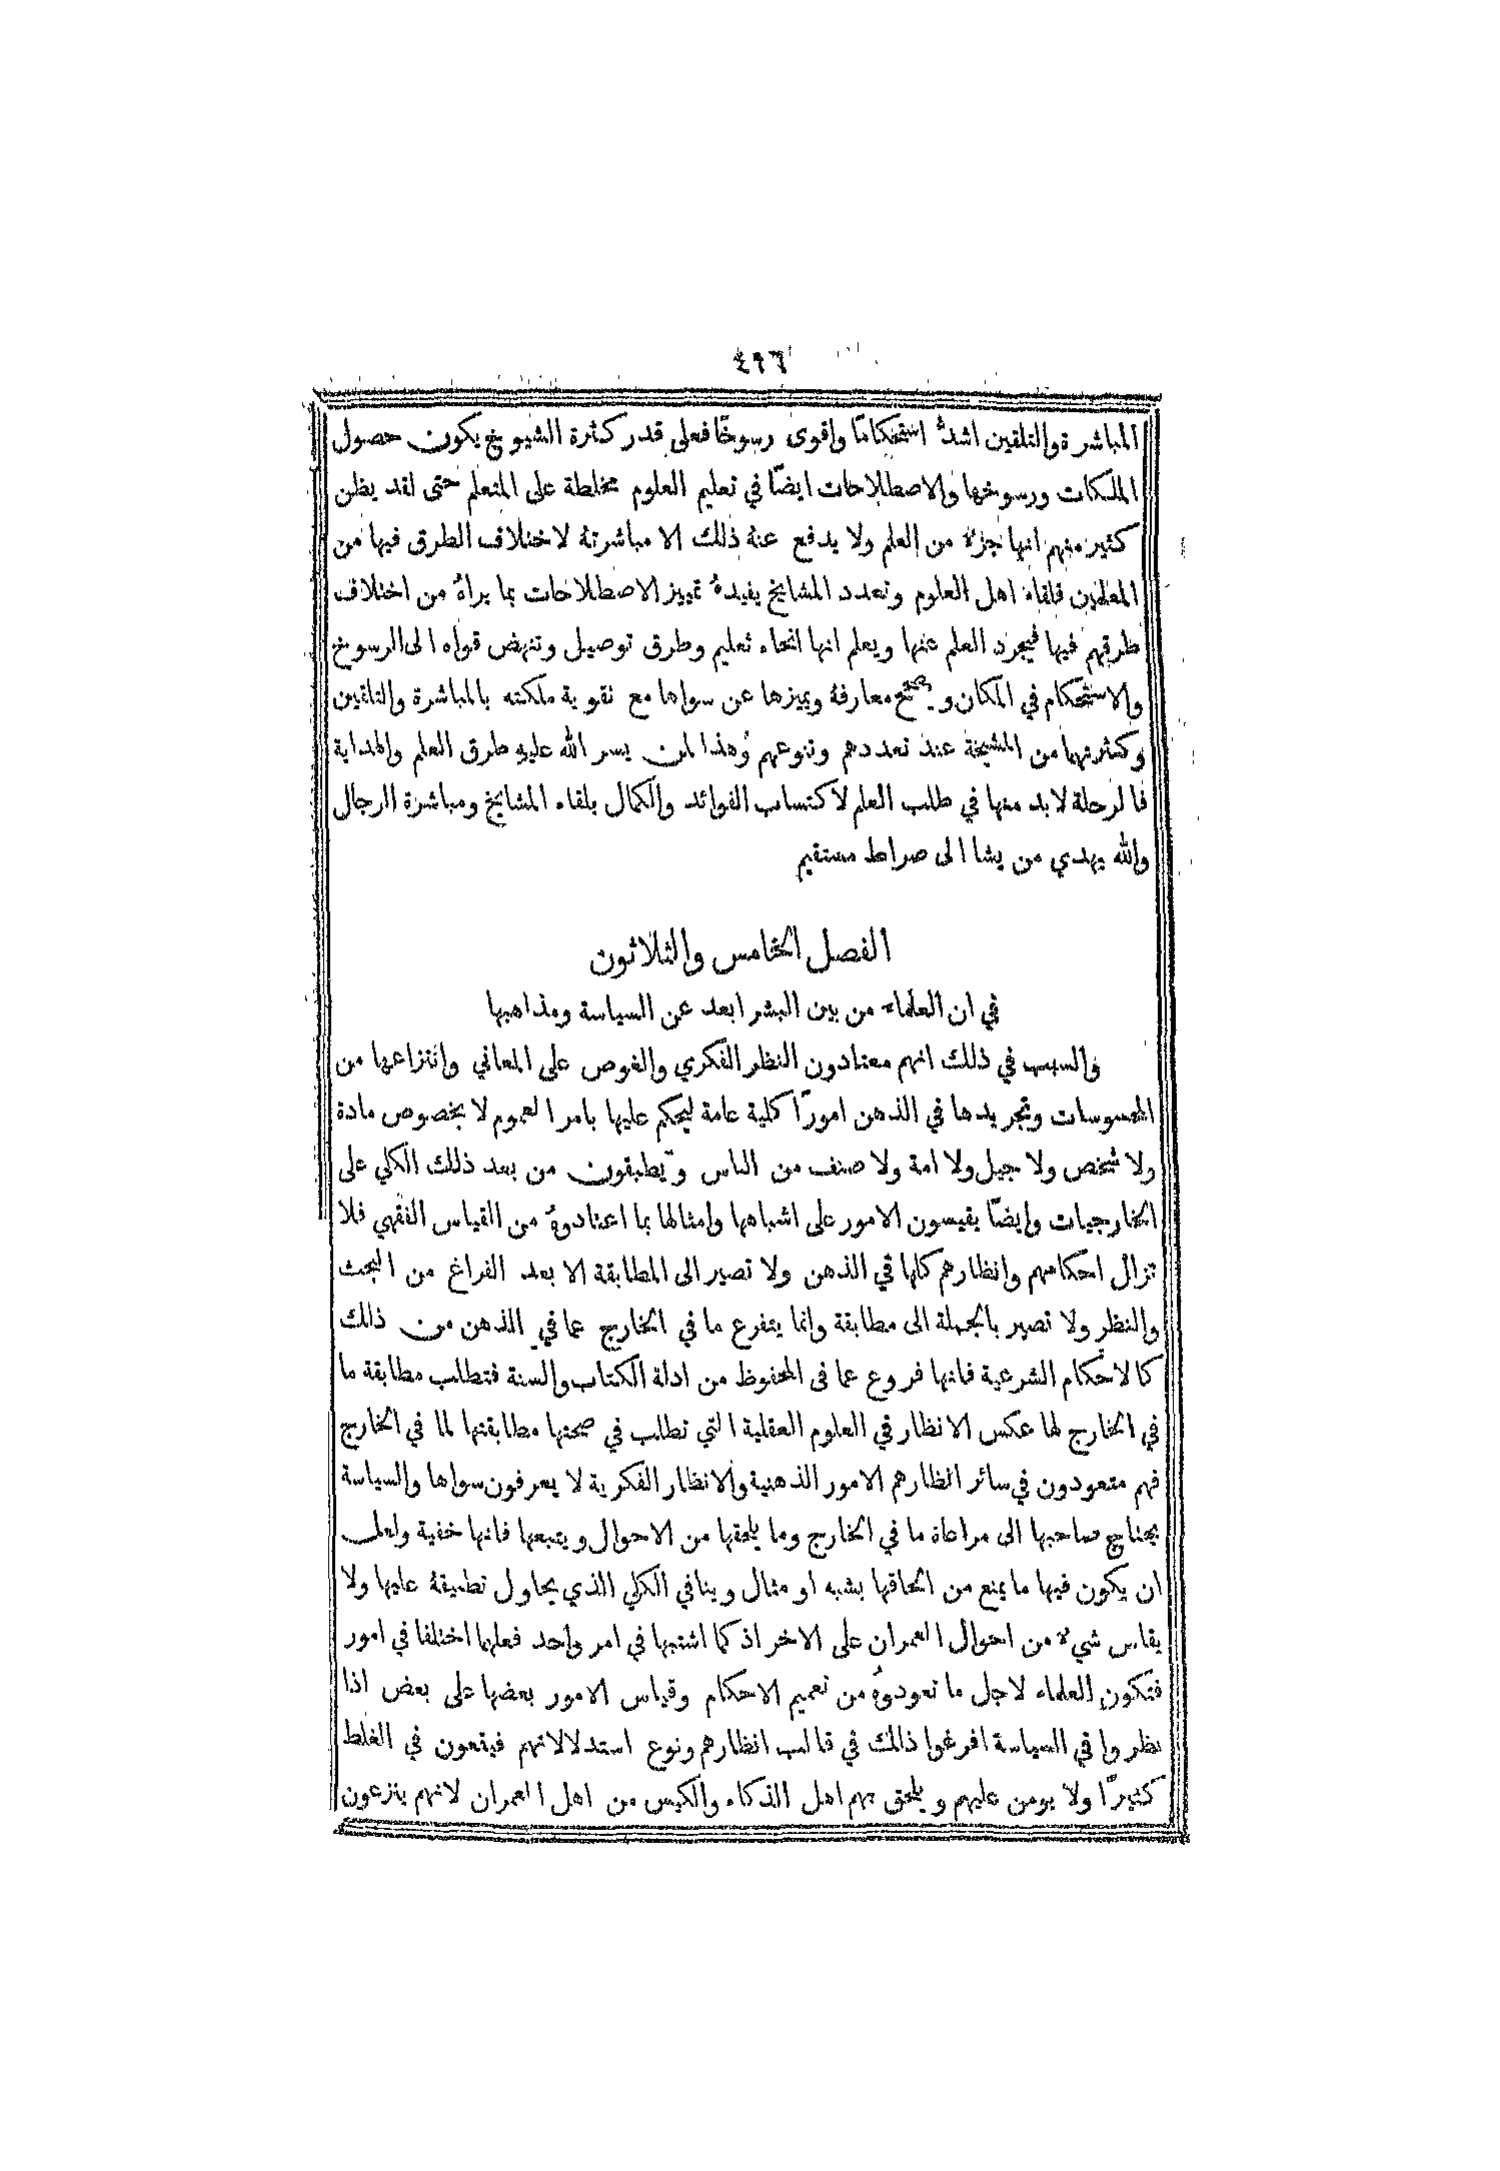 ٤٩٦
المباشرة والتلقين اشدُّ استحكامًا واقوى رسوخًا فعلى قدر كثرة الشيوخ يكون حصول
الملكات ورسوخها والاصطلاحات ايضًا في تعليم العلوم مخلطة على المتعلم حتى لقد يظن
كثير منهم انها جزء من العلم ولا يدفع عنهُ ذلك الا مباشرتهُ لاختلاف الطرق فيها من
المعلمين فلقاء اهل العلوم وتعدد المشايخ يفيدهُ تمييز الاصطلاحات بما يراهُ من اختلاف
طرقهم فيها فيجرد العلم عنها ويعلم انها انحاء تعليم وطرق توصيل وتنهض قواه الى الرسوخ
والاستحكام في المكان ويصحح معارفهُ ويميزها عن سواها مع تقوية ملكته بالمباشرة والتلقين
وكثرتهما من المشيخة عند تعددهم وتنوعهم وهذا لمن يسر الله عليهِ طرق العلم والهداية
فالرحلة لابد منها في طلب العلم لاكتساب الفوائد والكمال بلقاء المشايخ ومباشرة الرجال
والله يهدي من يشا الى صراط مستقيم
الفصل الخامس والثلاثون
في ان العلماء من بين البشر ابعد عن السياسة ومذاهبها
والسبب في ذلك انهم معتادون النظر الفكري والغوص على المعاني وانتزاعها من
المحسوسات وتجريدها في الذهن امورًا كلية عامة ليحكم عليها بامر العموم لا بخصوص مادة
ولا شخص ولا جيل ولا امة ولا صنف من الناس ويطبقون من بعد ذلك الكلي على
الخارجيات وايضًا يقيسون الامور على اشباهها وامثالها بما اعتادوهُ من القياس الفقهي فلا
تزال احكامهم وانظارهم كلها في الذهن ولا تصير الى المطابقة الا بعد الفراغ من البحث
والنظر ولا تصير بالجملة الى مطابقة وانما يتفرع ما في الخارج عما في الذهن من ذلك
كالاحكام الشرعية فانها فروع عما فى المحفوظ من ادلة الكتاب والسنة فتطلب مطابقة ما
في الخارج لها عكس الانظار في العلوم العقلية التي تطلب في صحتها مطابقتها لما في الخارج
فهم متعودون في سائر انظارهم الامور الذهنية والانظار الفكرية لا يعرفون سواها والسياسة
يحتاج صاحبها الى مراعاة ما في الخارج وما يلحقها من الاحوال ويتبعها فانها خفية ولعل
ان يكون فيها ما يمنع من الحاقها بشبه او مثال وينافي الكلي الذي يحاول تطبيقهُ عليها ولا
يقاس شيء من احوال العمران على الاخر اذ كما اشتبها في امر واحد فعلهما اختلفا في امور
فتكون العلماء لاجل ما تعودوهُ من تعميم الاحكام وقياس الامور بعضها على بعض اذا
نظروا في السياسة افرغوا ذلك في قالب انظارهم ونوع استدلالاتهم فيقعون في الغلط
كثيرًا ولا يومن عليهم ويلحق بهم اهل الذكاء والكيس من اهل العمران لانهم ينزعون